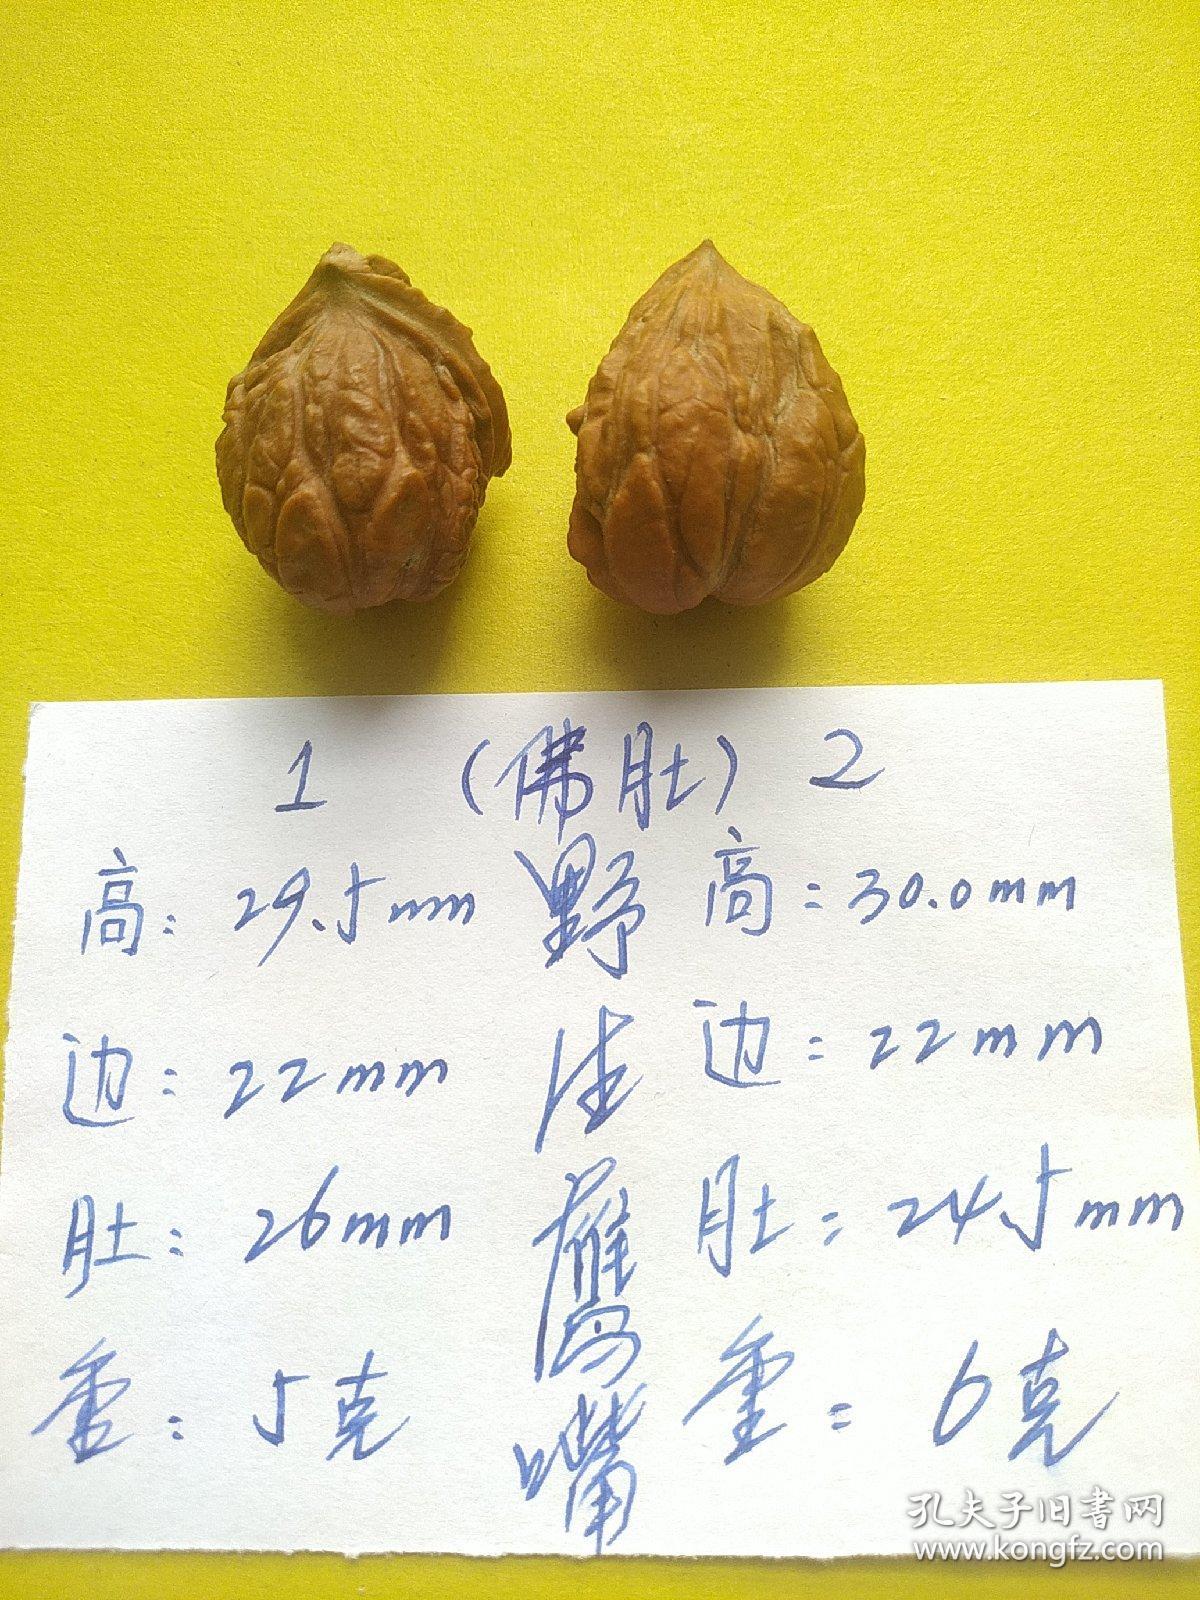 1 (佛肚) 2
高: 29.5mm
边: 22mm
肚: 26mm
重: 5克
野生鹰嘴
高: 30.0mm
边: 22mm
肚: 24.5mm
重: 6克
孔夫子旧书网
www.kongfz.com